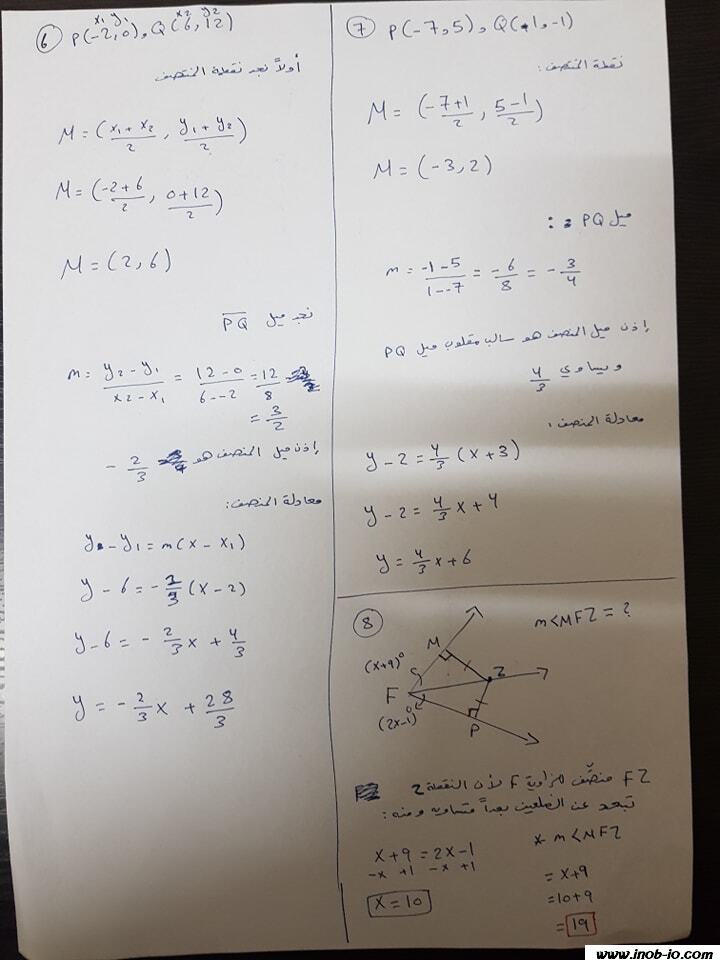 ⑥ P(-2,0), Q(6,12)
x₁ y₁ x₂ y₂
أولاً نجد نقطة المنتصف
M = (x₁ + x₂ / 2 , y₁ + y₂ / 2)
M = (-2+6 / 2 , 0+12 / 2)
M = (2, 6)
نجد ميل PQ
m = y₂ - y₁ / x₂ - x₁ = 12 - 0 / 6 - -2 = 12 / 8
= 3/2
إذن ميل المنصف هو - 2/3
معادلة المنصف:
y - y₁ = m(x - x₁)
y - 6 = - 2/3 (x - 2)
y - 6 = - 2/3 x + 4/3
y = - 2/3 x + 28/3
⑦ P(-7, 5), Q(1, -1)
نقطة المنتصف:
M = (-7+1 / 2 , 5-1 / 2)
M = (-3, 2)
ميل PQ :
m = -1 - 5 / 1 - -7 = -6/8 = - 3/4
إذن ميل المنصف هو سالب مقلوب ميل PQ
ويساوي 4/3
معادلة المنصف:
y - 2 = 4/3 (x + 3)
y - 2 = 4/3 x + 4
y = 4/3 x + 6
⑧ m<MFZ = ?
M
(x+9)°
Z
F
(2x-1)°
P
FZ منصّف للزاوية F لأن النقطة Z
تبعد عن الضلعين بعداً متساويه ومنه:
x + 9 = 2x - 1
-x +1 -x +1
x = 10
* m<MFZ
= x+9
= 10+9
= 19
www.inob-jo.com